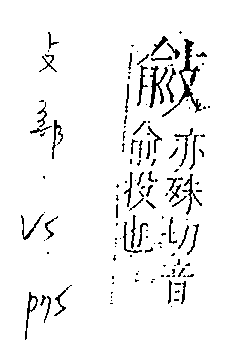 亦殊切音
俞投也
攴部.
V5.
P75